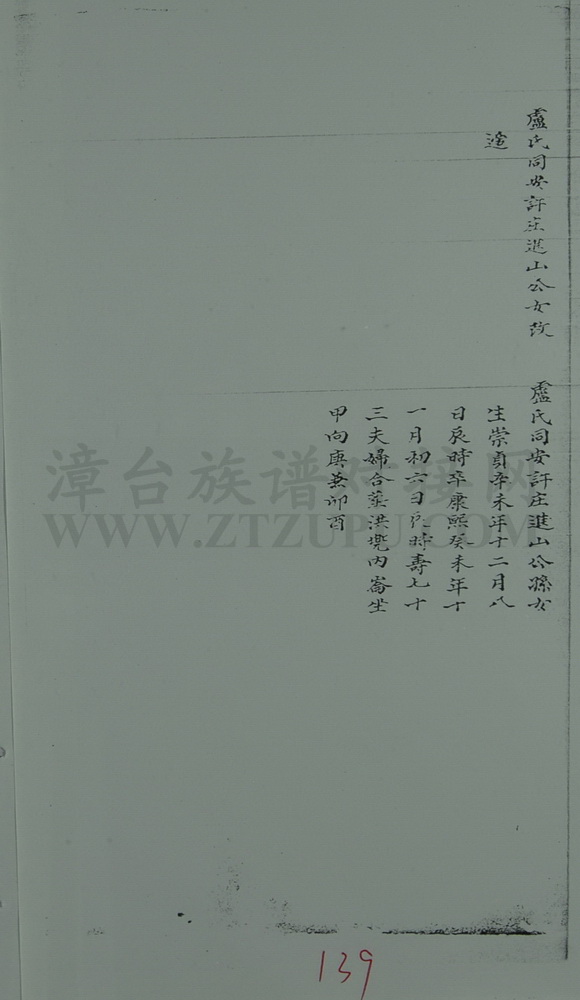 盧氏同安許庄進山公女故
遥
盧氏同安許庄進山公孫女
生崇貞辛未年十二月八
日辰時卒康熙癸未年十
一月初六日辰時壽七十
三夫婦合葬洪㙱内崙坐
甲向庚兼卯酉
漳台族谱对接网
WWW.ZTZUPU.COM
139